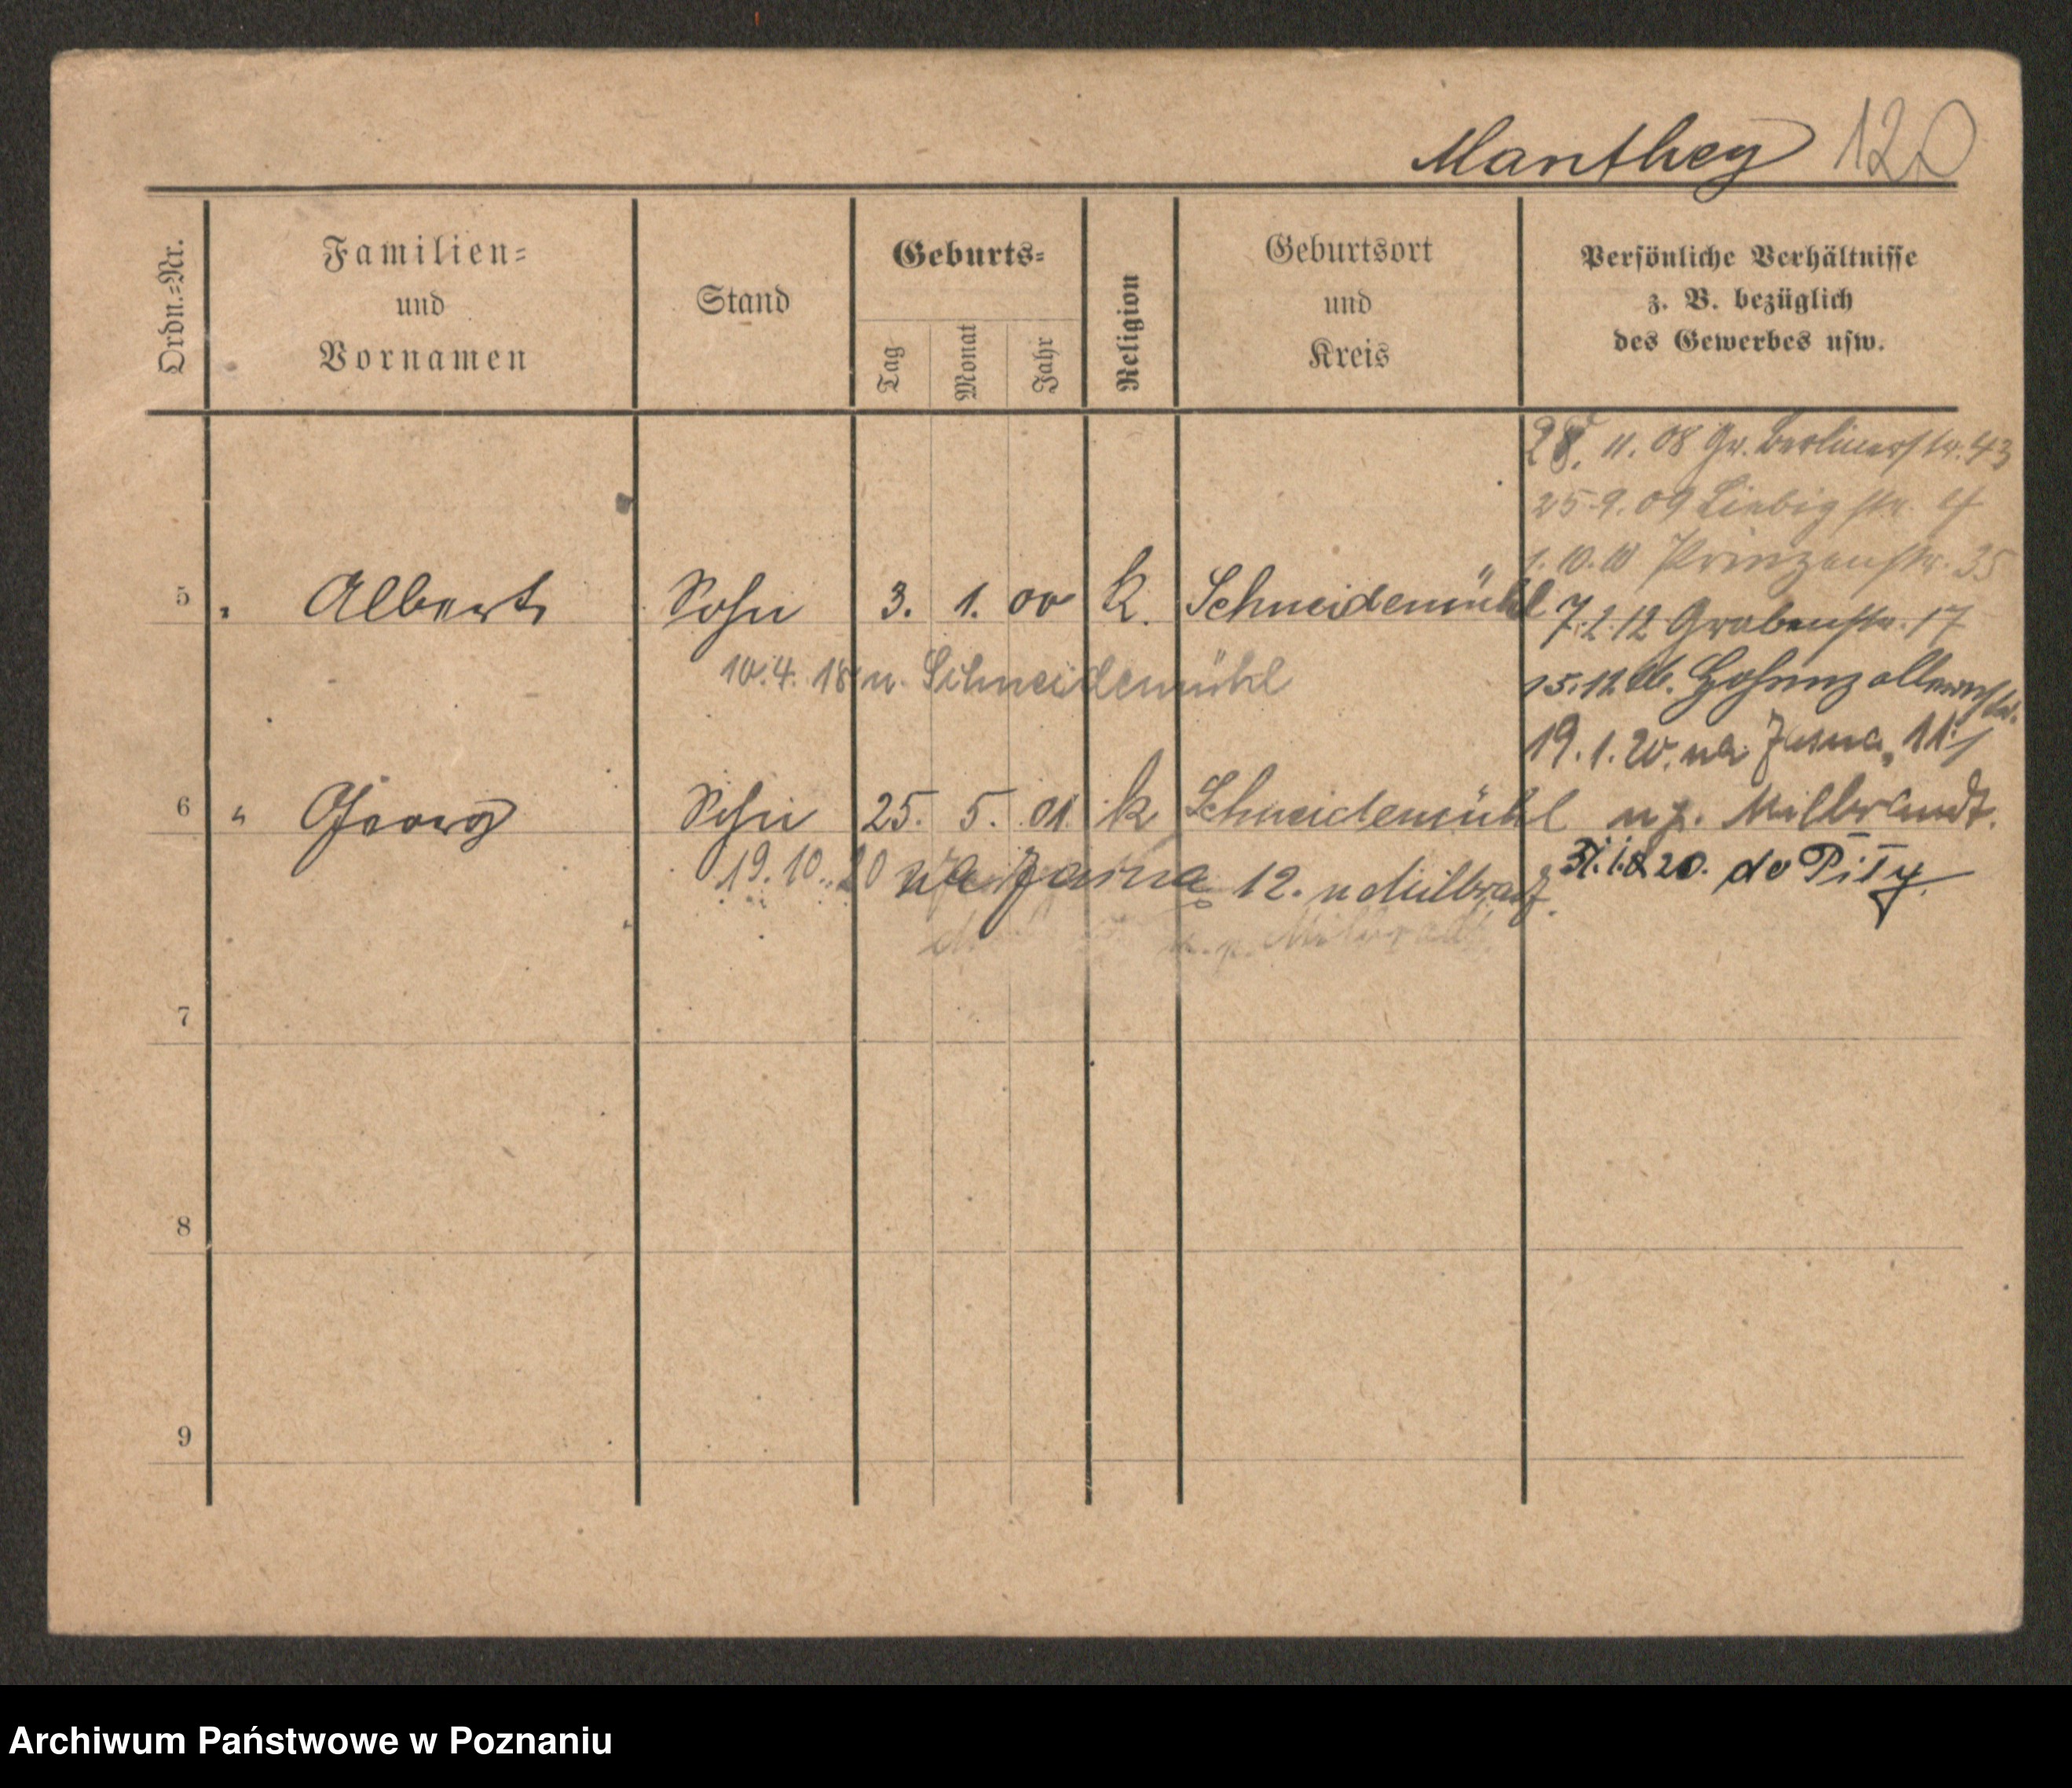 Manthey 120
Ordn.-Nr.
Familien-
und
Vornamen
Stand
Geburts-
Tag
Monat
Jahr
Religion
Geburtsort
und
Kreis
Persönliche Verhältnisse
z. B. bezüglich
des Gewerbes usw.
28. 11. 08 Gr. Berlinerstr. 43
25.9.09 Liebigstr. 4
1. 10. 10 Prinzenstr. 35
5 " Albert Sohn 3. 1. 00 k. Schneidemühl
7.2.12 Grabenstr. 17
10.4.18 n. Schneidemühl
Hohenzollernstr.
19. 1. 20. na Jasna 11
6 " Georg Sohn 25. 5. 01. k Schneidemühl
u p. Millbrandt.
19. 10. 20 na Jasna 12.
20. do Piły
7
8
9
Archiwum Państwowe w Poznaniu